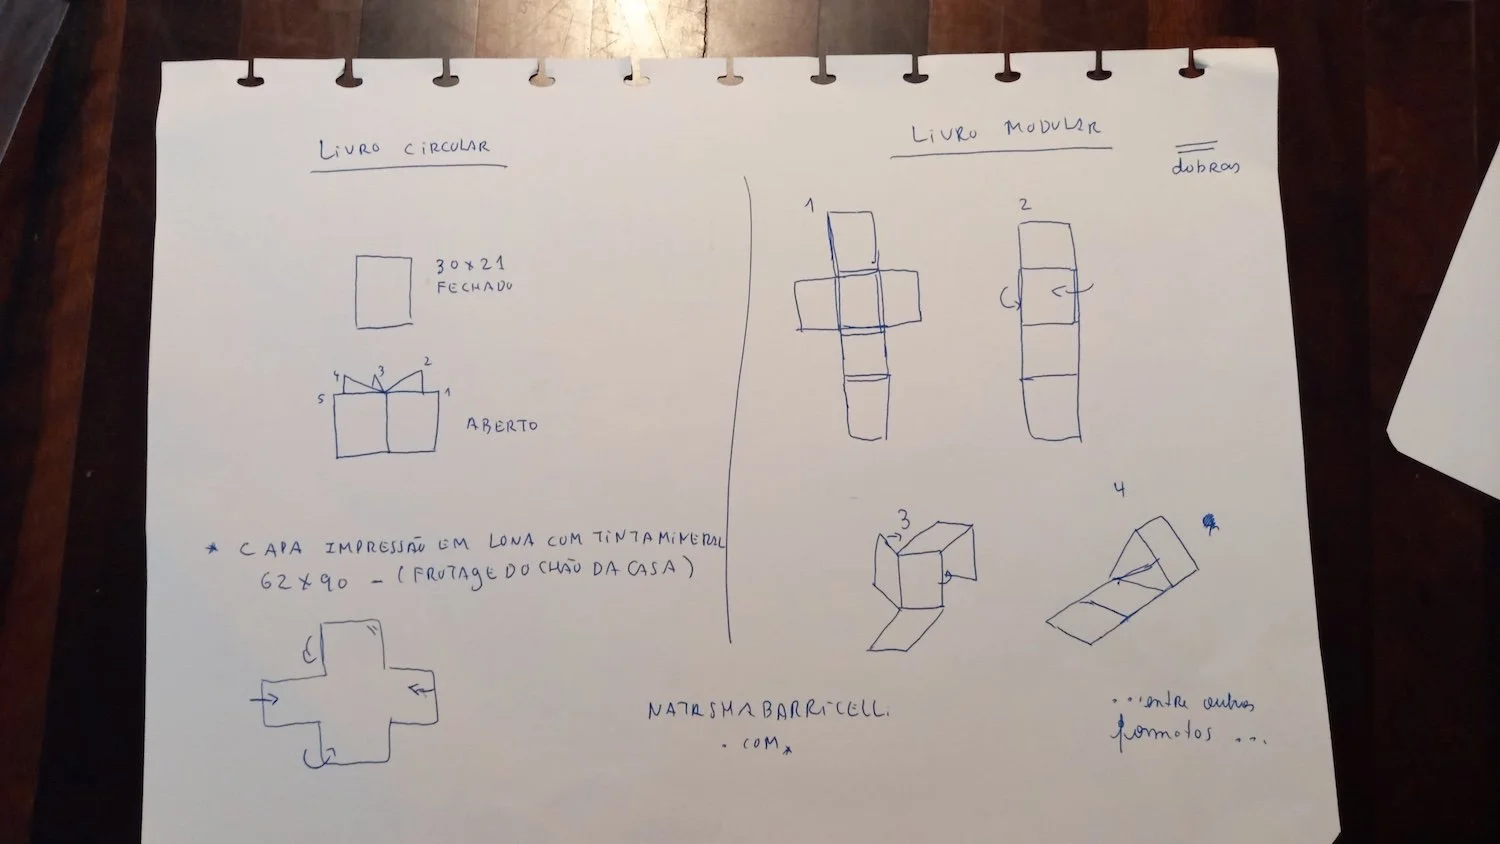 LIVRO CIRCULAR
30x21
FECHADO
4 3 2
5 1
ABERTO
* CAPA IMPRESSÃO EM LONA COM TINTA MINERAL
62x90 - (FROTAGE DO CHÃO DA CASA)
LIVRO MODULAR
dobras
1
2
3
4
*
...entre outros
formatos ...
NATASHABARRICELLI
.COM*